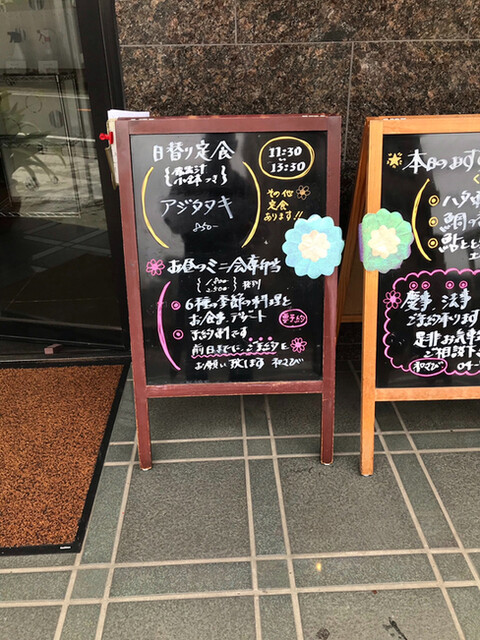 日替り定食
小鉢つき
アジタタキ
850-
11:30
〜
13:30
その他
定食
あります!!
お昼のミニ会席弁当
1,800
2,500
税別
6種の季節の料理と
お食事、デザート
要予約
前日までに、ご予約を
お願い致します 和さび
本日のおすす
ハタ
鯛
鮎
慶事 法事
ご予約承ります
是非お気軽
ご相談下
和さび